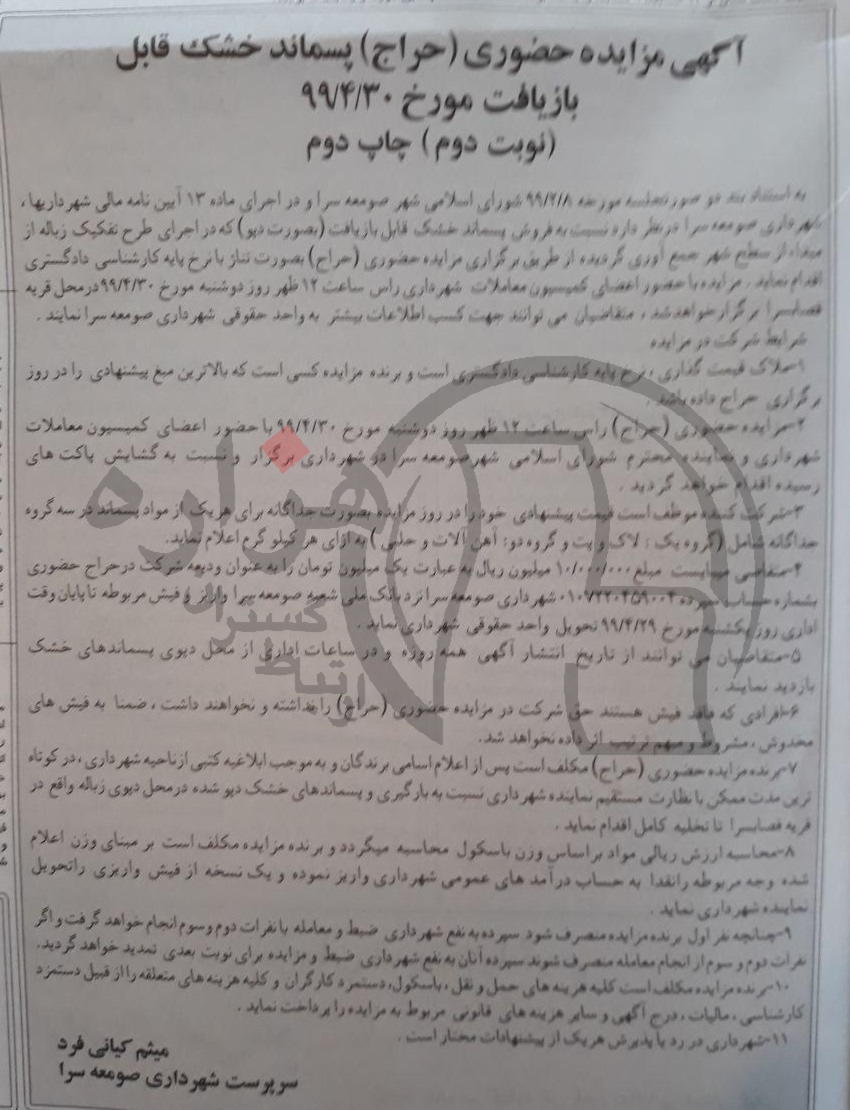 آگهی مزایده حضوری (حراج) پسماند خشک قابل
بازیافت مورخ ۹۹/۴/۳۰
(نوبت دوم) چاپ دوم
به استناد بند دو صورتجلسه مورخه ۹۹/۲/۸ شورای اسلامی شهر صومعه سرا و در اجرای ماده ۱۳ آیین نامه مالی شهرداریها،
شهرداری صومعه سرا در نظر دارد نسبت به فروش پسماند خشک قابل بازیافت (بصورت دپو) که در اجرای طرح تفکیک زباله از
مبداء از سطح شهر جمع آوری گردیده از طریق برگزاری مزایده حضوری (حراج) بصورت تناژ با نرخ پایه کارشناسی دادگستری
اقدام نماید. مزایده با حضور اعضای کمیسیون معاملات شهرداری راس ساعت ۱۲ ظهر روز دوشنبه مورخ ۹۹/۴/۳۰ در محل قریه
قصابسرا برگزار خواهد شد، متقاضیان می توانند جهت کسب اطلاعات بیشتر به واحد حقوقی شهرداری صومعه سرا نمایند.
شرایط شرکت در مزایده
۱-ملاک قیمت گذاری، نرخ پایه کارشناسی دادگستری است و برنده مزایده کسی است که بالاترین مبغ پیشنهادی را در روز
برگزاری حراج داده باشد.
۲-مزایده حضوری (حراج) راس ساعت ۱۲ ظهر روز دوشنبه مورخ ۹۹/۴/۳۰ با حضور اعضای کمیسیون معاملات
شهرداری و نماینده محترم شورای اسلامی شهر صومعه سرا در شهرداری برگزار و نسبت به گشایش پاکت های
رسیده اقدام خواهد گردید.
۳-شرکت کننده موظف است قیمت پیشنهادی خود را در روز مزایده بصورت جداگانه برای هر یک از مواد پسماند در سه گروه
جداگانه شامل (گروه یک: لاک و پت و گروه دو: آهن آلات و حلبی) به ازای هر کیلو گرم اعلام نماید.
۴-متقاضی میبایست مبلغ ۱۰/۰۰۰/۰۰۰ میلیون ریال به عبارت یک میلیون تومان را به عنوان ودیعه شرکت در حراج حضوری
بشماره حساب سپرده ۰۱۰۷۲۲۰۴۵۹۰۰۴ شهرداری صومعه سرا نزد بانک ملی شعبه صومعه سرا واریز و فیش مربوطه تا پایان وقت
اداری روز یکشنبه مورخ ۹۹/۴/۲۹ تحویل واحد حقوقی شهرداری نماید.
۵-متقاضیان می توانند از تاریخ انتشار آگهی همه روزه و در ساعات اداری از محل دپوی پسماندهای خشک
بازدید نمایند.
۶-افرادی که فاقد فیش هستند حق شرکت در مزایده حضوری (حراج) را نداشته و نخواهند داشت، ضمنا به فیش های
مخدوش، مشروط و مبهم ترتیب اثر داده نخواهد شد.
۷-برنده مزایده حضوری (حراج) مکلف است پس از اعلام اسامی برندگان و به موجب ابلاغیه کتبی از ناحیه شهرداری، در کوتاه
ترین مدت ممکن با نظارت مستقیم نماینده شهرداری نسبت به بارگیری و پسماندهای خشک دپو شده در محل دپوی زباله واقع در
قریه قصابسرا تا تخلیه کامل اقدام نماید.
۸-محاسبه ارزش ریالی مواد بر اساس وزن باسکول محاسبه میگردد و برنده مزایده مکلف است بر مبنای وزن اعلام
شده وجه مربوطه را نقدا به حساب درآمد های عمومی شهرداری واریز نموده و یک نسخه از فیش واریزی را تحویل
نماینده شهرداری نماید.
۹-چنانچه نفر اول برنده مزایده منصرف شود سپرده به نفع شهرداری ضبط و معامله با نفرات دوم و سوم انجام خواهد گرفت و اگر
نفرات دوم و سوم از انجام معامله منصرف شوند سپرده آنان به نفع شهرداری ضبط و مزایده برای نوبت بعدی تمدید خواهد گردید.
۱۰-برنده مزایده مکلف است کلیه هزینه های حمل و نقل، باسکول، دستمزد کارگران و کلیه هزینه های متعلقه را از قبیل دستمزد
کارشناسی، مالیات، درج آگهی و سایر هزینه های قانونی مربوط به مزایده را پرداخت نماید.
۱۱-شهرداری در رد یا پذیرش هر یک از پیشنهادات مختار است.
میثم کیانی فرد
سرپرست شهرداری صومعه سرا
هزاره
ارتباط گستر